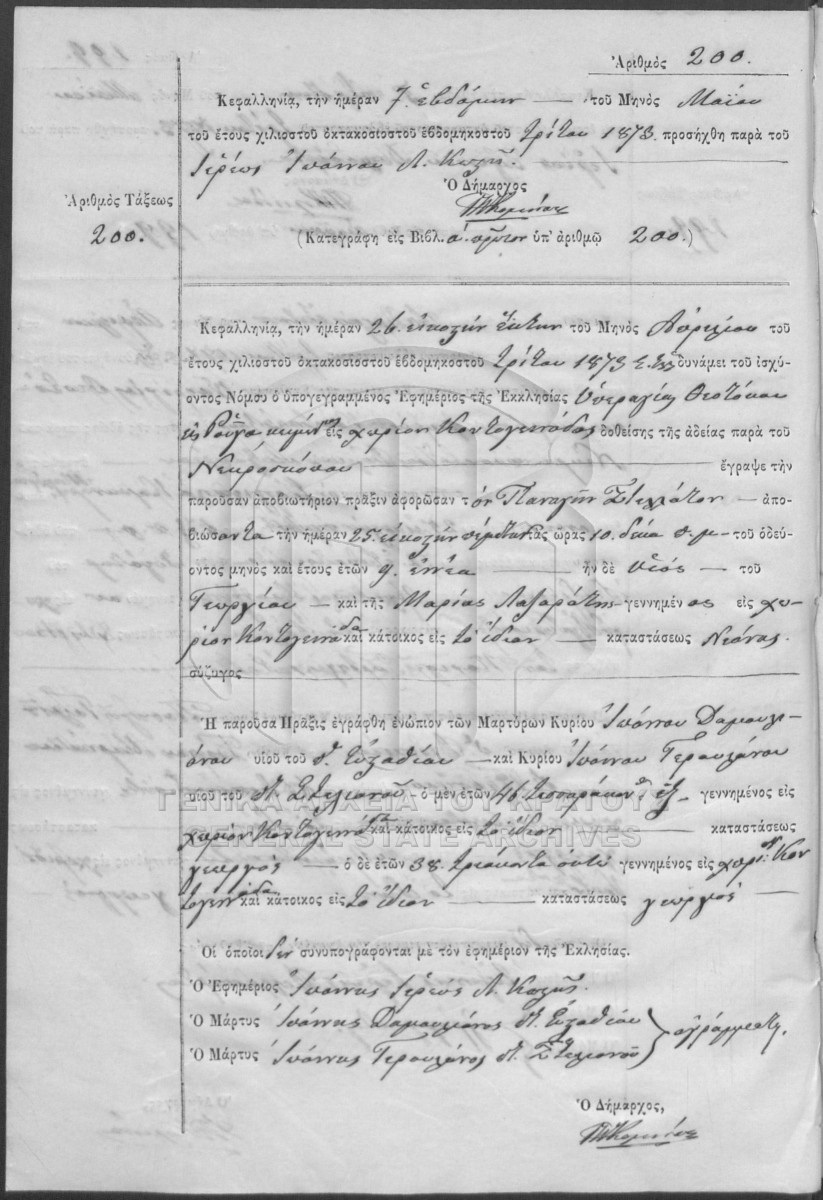 Ἀριθμὸς 200.
Κεφαλληνίᾳ, τὴν ἡμέραν 7. ἑβδόμην τοῦ Μηνὸς Μαΐου
τοῦ ἔτους χιλιοστοῦ ὀκτακοσιοστοῦ ἑβδομηκοστοῦ τρίτου 1873. προσήχθη παρὰ τοῦ
Ἱερέως Ἰωάννου Λ.
Ὁ Δήμαρχος
Ἀριθμὸς Τάξεως
200.
(Κατεγράφη εἰς Βιβλ. α. πρῶτον ὑπ' ἀριθμῷ 200.)
Κεφαλληνίᾳ, τὴν ἡμέραν 26. εἰκοστὴν ἕκτην τοῦ Μηνὸς Ἀπριλίου τοῦ
ἔτους χιλιοστοῦ ὀκτακοσιοστοῦ ἑβδομηκοστοῦ τρίτου 1873 δυνάμει τοῦ ἰσχύ-
οντος Νόμου ὁ ὑπογεγραμμένος Ἐφημέριος τῆς Ἐκκλησίας Ὑπεραγίας Θεοτόκου
εἰς χωρίον Κοντογεννάδα δοθείσης τῆς ἀδείας παρὰ τοῦ
Νεκροσκόπου ἔγραψε τὴν
παροῦσαν ἀποβιωτήριον πρᾶξιν ἀφορῶσαν τὸν Παναγῆν Στελλάτον ἀπο-
βιώσαντα τὴν ἡμέραν 25. εἰκοστὴν πέμπτην τὰς ὥρας 10. δέκα π.μ. τοῦ ὁδεύ-
οντος μηνὸς καὶ ἔτους ἐτῶν 9. ἐννέα ἦν δὲ υἱὸς τοῦ
Γεωργίου καὶ τῆς Μαρίας Λαζαράτης γεννημένος εἰς χω-
ρίον Κοντογεννάδα καὶ κάτοικος εἰς τὸ ἴδιον καταστάσεως Νεάνας.
σύζυγος
Ἡ παροῦσα Πρᾶξις ἐγράφθη ἐνώπιον τῶν Μαρτύρων Κυρίου Ἰωάννου Δαμουλι-
άνου υἱοῦ τοῦ π. Εὐσταθίου καὶ Κυρίου Ἰωάννου Γερουλάνου
υἱοῦ τοῦ π. Στελιανοῦ ὁ μὲν ἐτῶν 46 τεσσαράκοντα ἓξ γεννημένος εἰς
χωρίον Κοντογεννάδα καὶ κάτοικος εἰς τὸ ἴδιον καταστάσεως
γεωργὸς ὁ δὲ ἐτῶν 38. τριάκοντα ὀκτὼ γεννημένος εἰς χωρίον Κον
τογεννάδα καὶ κάτοικος εἰς τὸ ἴδιον καταστάσεως γεωργὸς
Οἱ ὁποῖοι δὲν συνυπογράφονται μὲ τὸν ἐφημέριον τῆς Ἐκλησίας.
Ὁ Ἐφημέριος Ἰωάννης Ἱερεὺς Λ.
Ὁ Μάρτυς Ἰωάννης Δαμουλιάνος π. Εὐσταθίου
Ὁ Μάρτυς Ἰωάννης Γερουλάνος π. Στελιανοῦ
ἀγράμματοι.
Ὁ Δήμαρχος,
ΓΕΝΙΚΑ ΑΡΧΕΙΑ ΤΟΥ ΚΡΑΤΟΥΣ
GENERAL STATE ARCHIVES